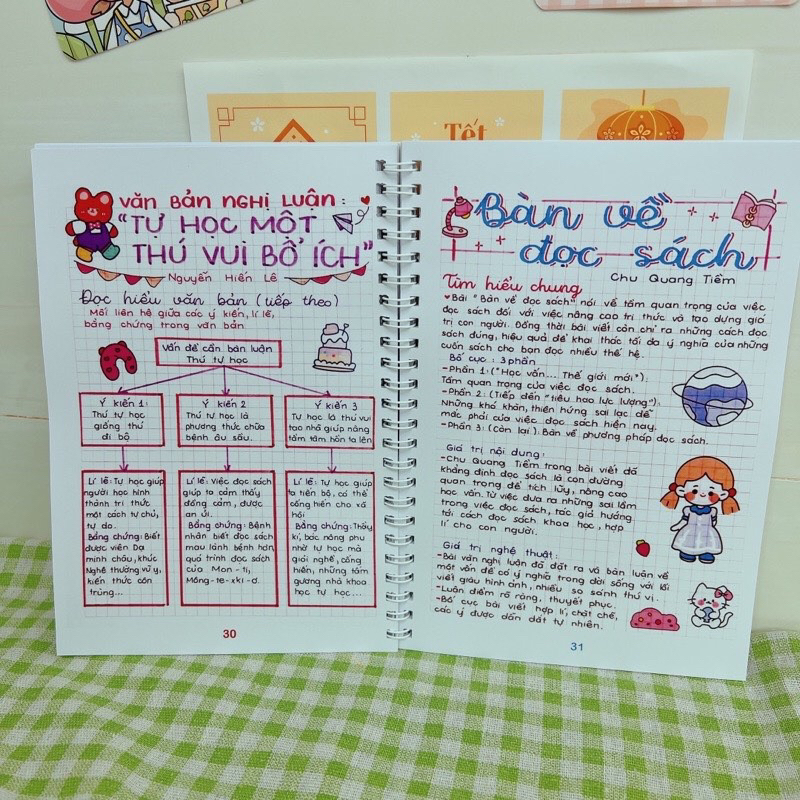 Tết
Văn bản nghị luận:
"Tự học một
thú vui bổ ích"
Nguyễn Hiến Lê
Đọc hiểu văn bản (tiếp theo)
Mối liên hệ giữa các ý kiến, lí lẽ,
bằng chứng trong văn bản
Vấn đề cần bàn luận
Thú tự học
Ý kiến 1:
Thú tự học
giống thú
đi bộ
Ý kiến 2:
Thú tự học là
phương thức chữa
bệnh âu sầu.
Ý kiến 3
Tự học là thú vui
tao nhã giúp nâng
tầm tâm hồn ta lên
Lí lẽ: Tự học giúp
người học hình
thành tri thức
một cách tự chủ,
tự do.
Bằng chứng: Biết
được viên Dạ
minh châu, khúc
Nghê thường vũ y,
kiến thức côn
trùng...
Lí lẽ: Việc đọc sách
giúp ta cảm thấy
đồng cảm, được
an ủi.
Bằng chứng: Bệnh
nhân biết đọc sách
mau lành bệnh hơn,
quá trình đọc sách
của Mon-ti,
Mông-te-xki-ơ.
Lí lẽ: Tự học giúp
ta tiến bộ, có thể
cống hiến cho xã
hội
Bằng chứng: Thầy
kí, bác nông phu
nhờ tự học mà
giỏi nghề, cống
hiến, những tấm
gương nhà khoa
học tự học...
30
Bàn về
đọc sách
Chu Quang Tiềm
Tìm hiểu chung
Bài "Bàn về đọc sách" nói về tầm quan trọng của việc
đọc sách đối với việc nâng cao tri thức và tạo dựng giá
trị con người. Đồng thời bài viết còn chỉ ra những cách đọc
sách đúng, hiệu quả để khai thác tối đa ý nghĩa của những
cuốn sách cho bạn đọc nhiều thế hệ.
Bố cục: 3 phần
-Phần 1: ("Học vấn... Thế giới mới"):
Tầm quan trọng của việc đọc sách.
-Phần 2: (Tiếp đến "tiêu hao lực lượng"):
Những khó khăn, thiên hướng sai lạc dễ
mắc phải của việc đọc sách hiện nay.
-Phần 3: (Còn lại). Bàn về phương pháp đọc sách.
Giá trị nội dung:
-Chu Quang Tiềm trong bài viết đã
khẳng định đọc sách là con đường
quan trọng để tích lũy, nâng cao
học vấn. Từ việc đưa ra những sai lầm
trong việc đọc sách, tác giả hướng
tới cách đọc sách khoa học, hợp
lí cho con người.
Giá trị nghệ thuật:
-Bài văn nghị luận đã đặt ra và bàn luận về
một vấn đề có ý nghĩa trong đời sống với lối
viết giàu hình ảnh, nhiều so sánh thú vị.
-Luận điểm rõ ràng, thuyết phục.
-Bố cục bài viết hợp lí, chặt chẽ,
các ý được dẫn dắt tự nhiên.
31